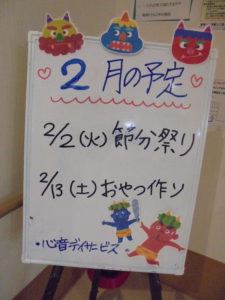 2月の予定
2/2(火)節分祭り
2/13(土)おやつ作り
・心音デイサービス